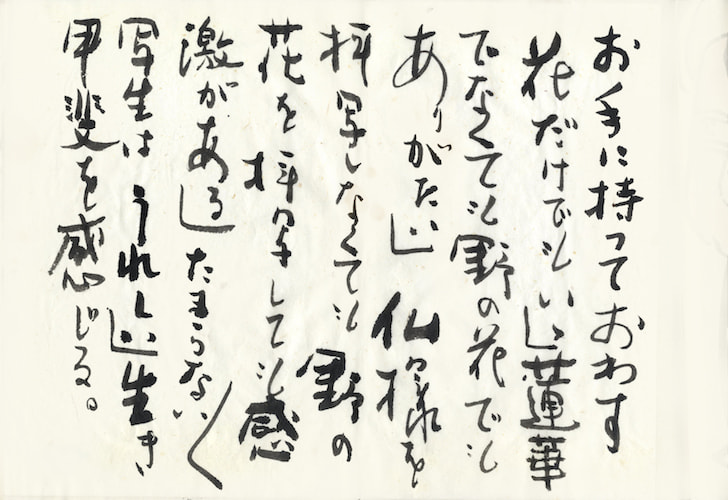 お手に持っておわす
花だけでもいい」蓮華
でなくても野の花でも
ありがたい」仏様を
拝写しなくても野の
花を拝写しても感
激がある」たまらない〱
写生はうれしい」生き
甲斐を感じる。